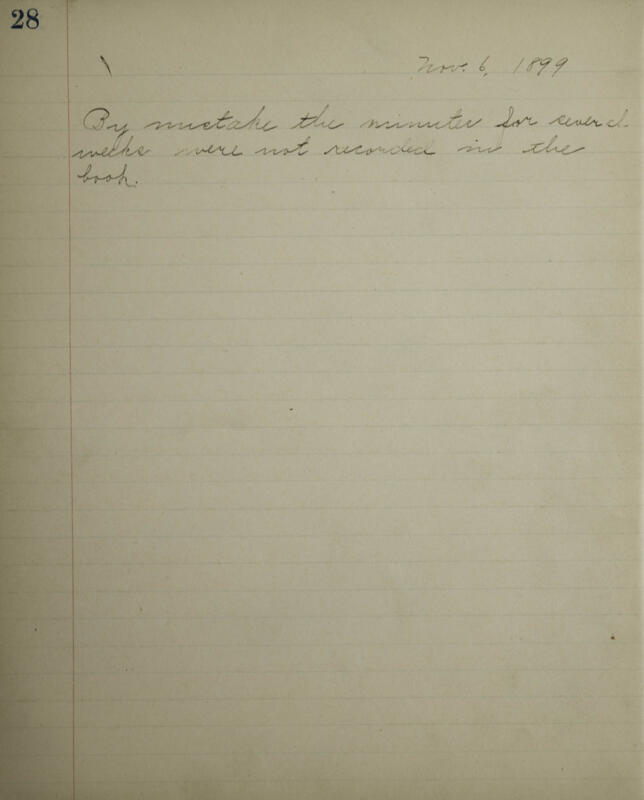 28
Nov. 6, 1899
By mistake the minutes for several
weeks were not recorded in the
book.